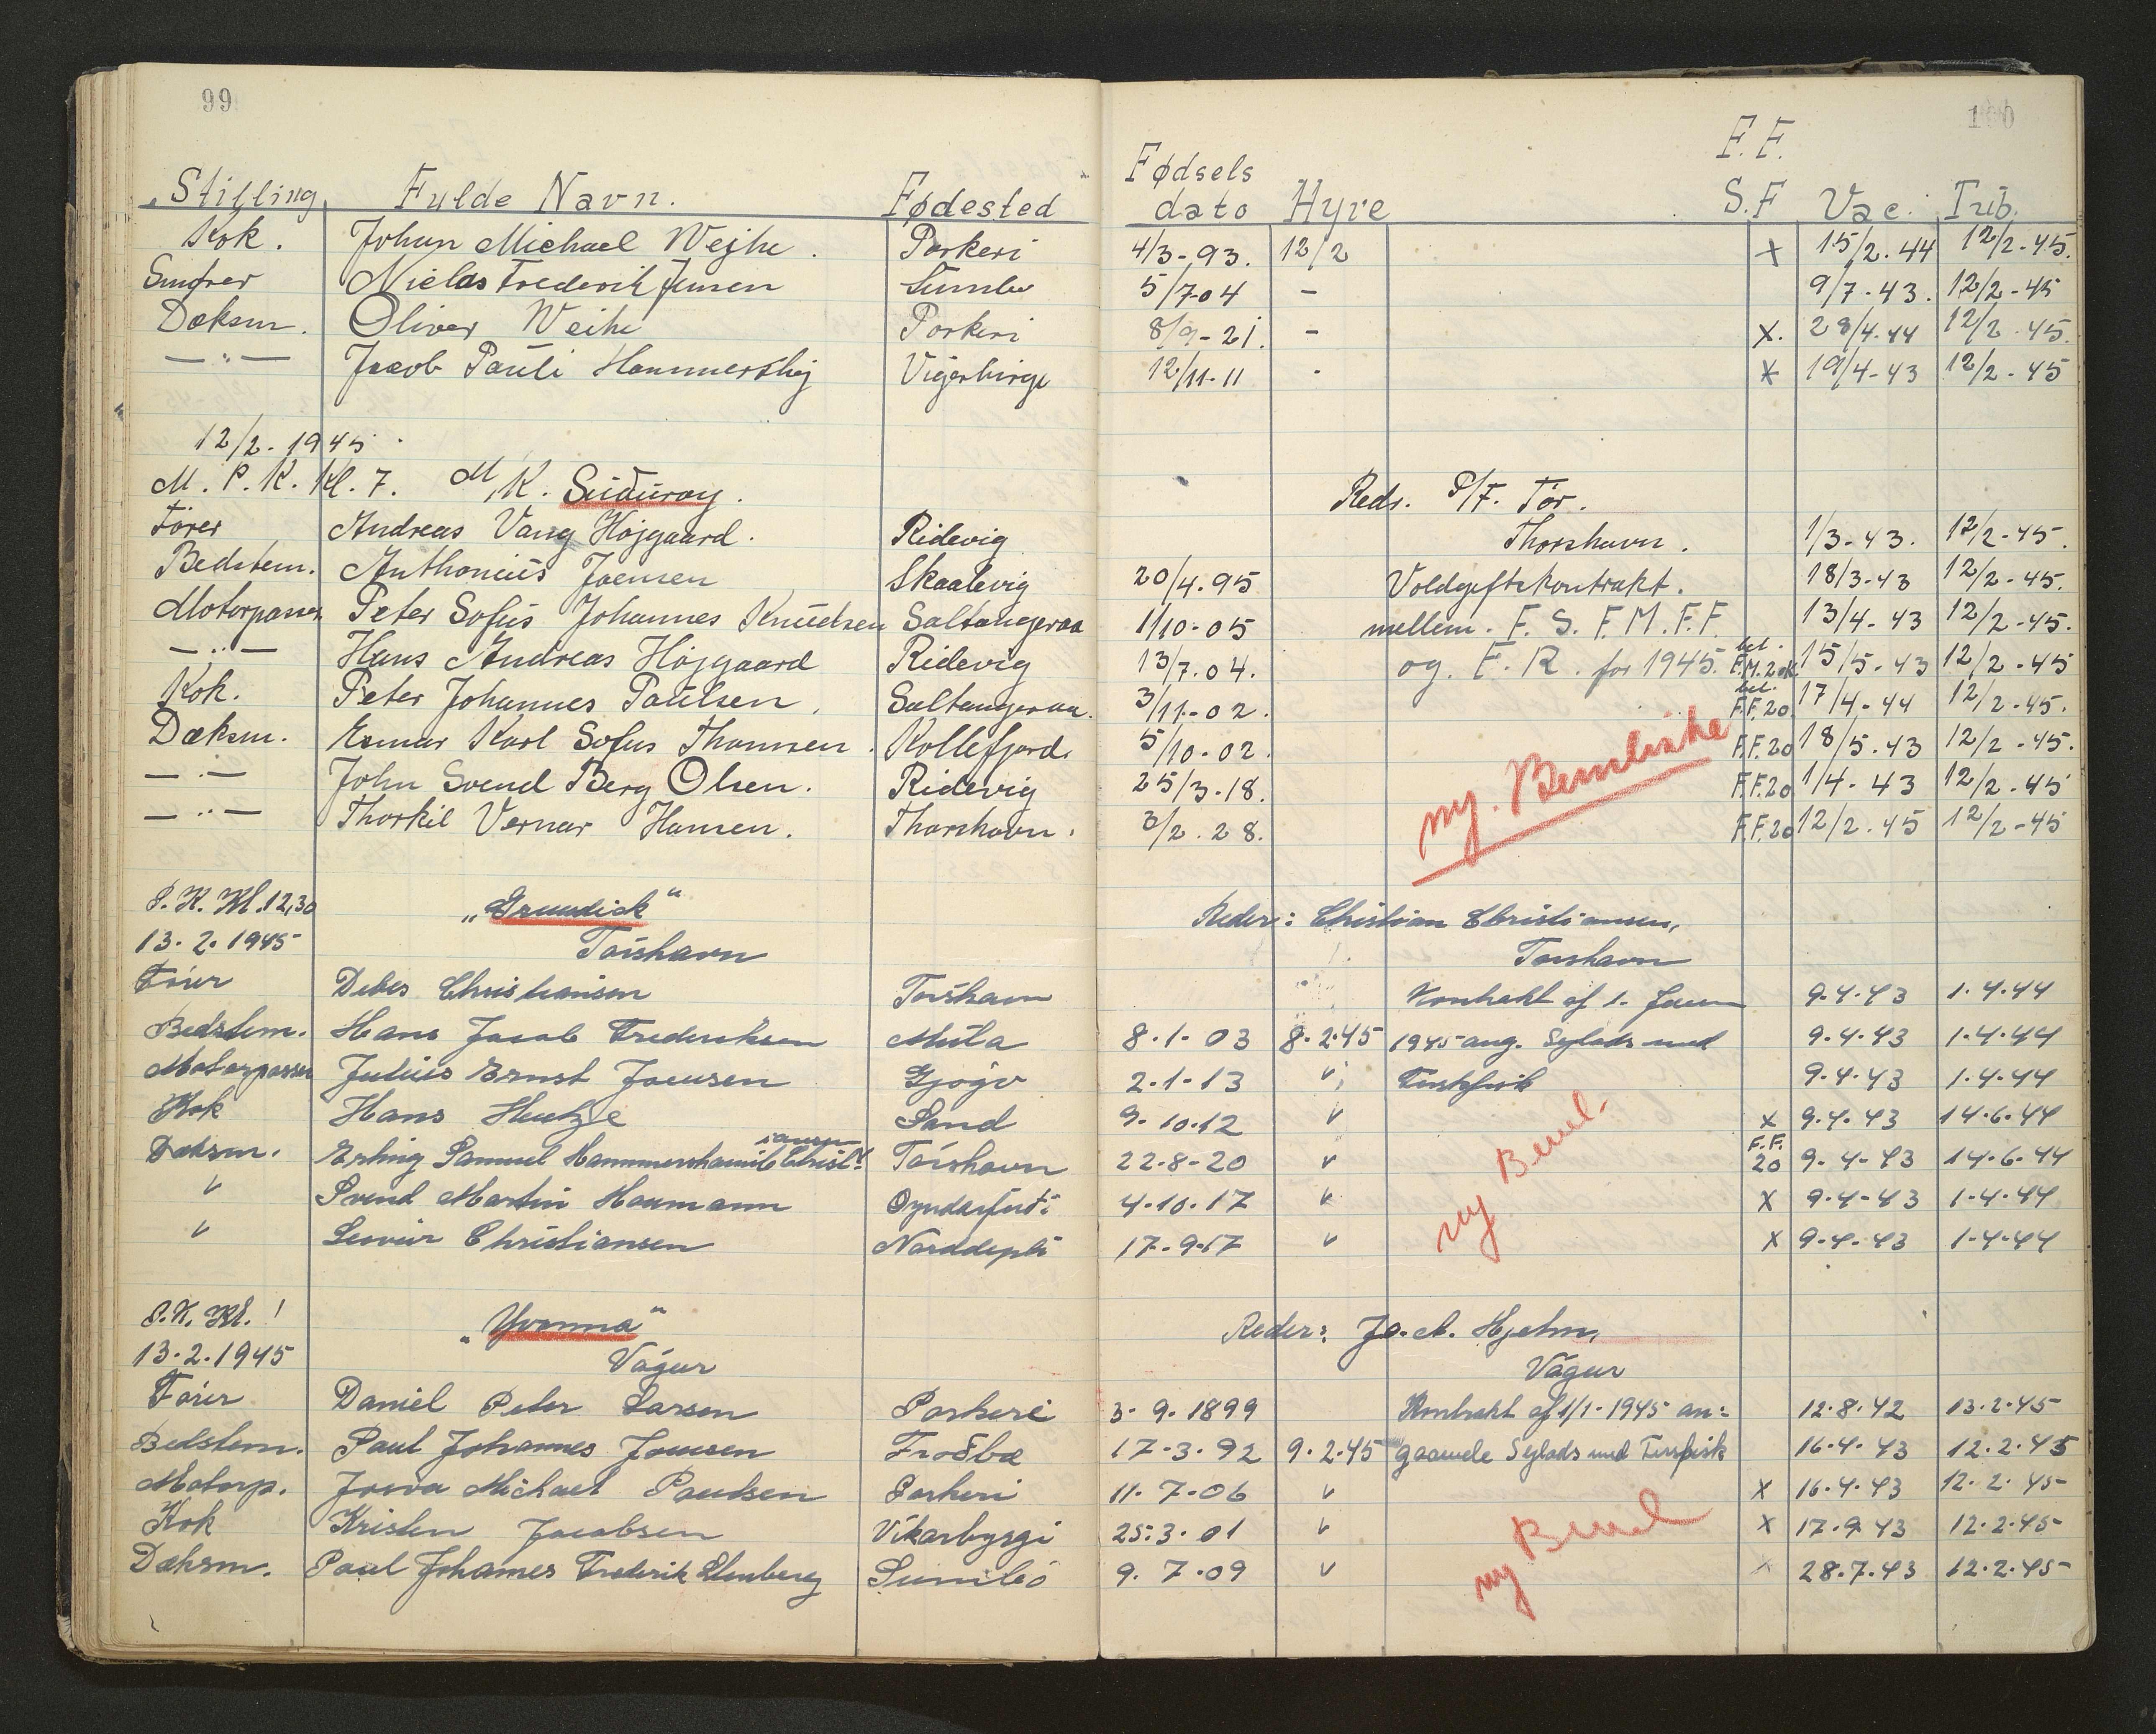 99
100
Stilling Fulde Navn. Fødested Fødsels dato Hyre F.F. S.F Vac. Trib.
Kok. Johan Michael Wejhe. Porkeri 4/3-93. 12/2 x 15/2.44 12/2-45.
Smører Niclas Frederik Jensen Sumbø 5/7-04 - 9/7-43. 12/2-45
Dæksm. Oliver Weihe Porkeri 8/9-21. - x. 28/4.44 12/2.45.
—"— Jacob Pauli Hammershøj 12/11-11 - x 19/4-43 12/2-45
12/2-1945.
M.P.K. Kl.7. M/K. Suduroy. Reds. P/F. Tór.
Fører Andreas Vang Højgaard. Ridevig Thorshavn. 1/3-43. 12/2-45.
Bedstem. Anthonius Joensen Skaalevig 20/4.95 Voldgiftskontrakt. 18/3-43 12/2-45.
Motorpasser Peter Sofus Johannes Knudsen Saltangeraa 1/10-05 mellem. F.S.F.M.F.F. 13/4-43 12/2-45.
—"— Hans Andreas Højgaard Ridevig 13/7.04. og F.R. for 1945. bet. F.M.20K. 15/5-43 12/2-45
Kok. Peter Johannes Poulsen. Saltangeraa. 3/11-02. bet. F.F.20 17/4-44 12/2-45.
Dæksm. Karl Sofus Thomsen. Kollefjord. 5/10-02. F.F.20 18/5.43 12/2-45.
—"— John Svend Berg Olsen. Ridevig 25/3-18. F.F.20 1/4-43 12/2-45
—"— Thorkil Vernar Hansen. Thorshavn. 3/2.28. F.F.20 12/2.45 12/2-45
ny.
P.K. Kl.12,30 „Grundick" Reder: Christian Christiansen,
13.2.1945 Torshavn Torshavn
Fører Debes Christiansen Torshavn Kontrakt af 1. 9.4.43 1.4.44
Bedstem. Hans Jacob Frederiksen Múla 8.1-03 8.2.45 1945 ang. Sejlads med 9.4.43 1.4.44
Motorpasser Julius Ernst Joensen Gjógv 2.1-13 " Ferskfisk 9.4.43 1.4.44
Kok Hans Hentze Sand 9.10.12 " x 9.4.43 14.6.44
Dæksm. Erling Samuel Hammershaimb Christiansen Tórshavn 22-8-20 " F.F. 20 9-4-43 14.6.44
" Svend Martin Haumann 4.10.17 " x 9.4-43 1.4.44
" Christiansen Norddepli 17-9-17 " x 9-4-43 1-4-44
ny Beml.
P.K. Kl. 1 „Yvonna" Reder: Jo. A. Hjelm,
13.2.1945 Vágur Vágur
Fører Daniel Peter Larsen Porkeri 3-9.1899 Kontrakt af 1/1-1945 an= 12.8.42 13.2.45
Bedstem. Paul Johannes Joensen Froðbæ 17-3.92 9.2.45 gaaende Sejlads med Ferskfisk 16.4.43 12.2.45
Motorp. Michael Poulsen Porkeri 11.7-06 " x 16.4.43 12.2.45
Kok Kristen Jacobsen Vikarbyrgi 25.3.01 " x 17.9.43 12.2.45
Dæksm. Paul Johannes Frederik Sumbø 9.7.09 " x 28.7.43 12.2.45
ny Beml